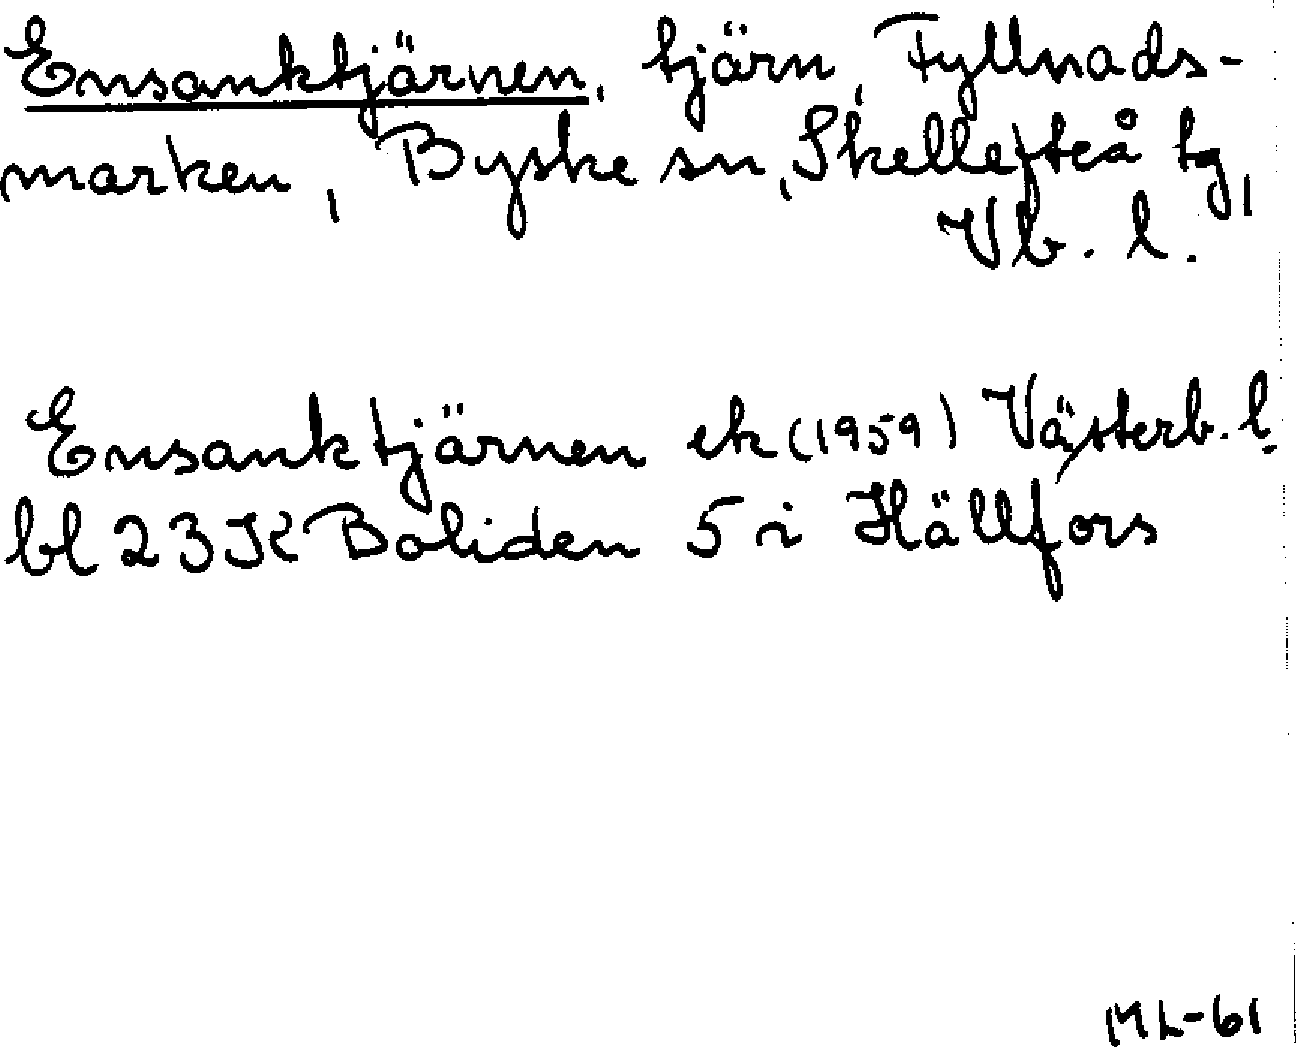 Ensanktjärnen, tjärn, Fyllnads-
marken, Byske sn, Skellefteå tg,
Vb. l.
Ensanktjärnen ek (1959) Västerb. l.
bl 23 K Boliden 5 i Hällfors
ML-61